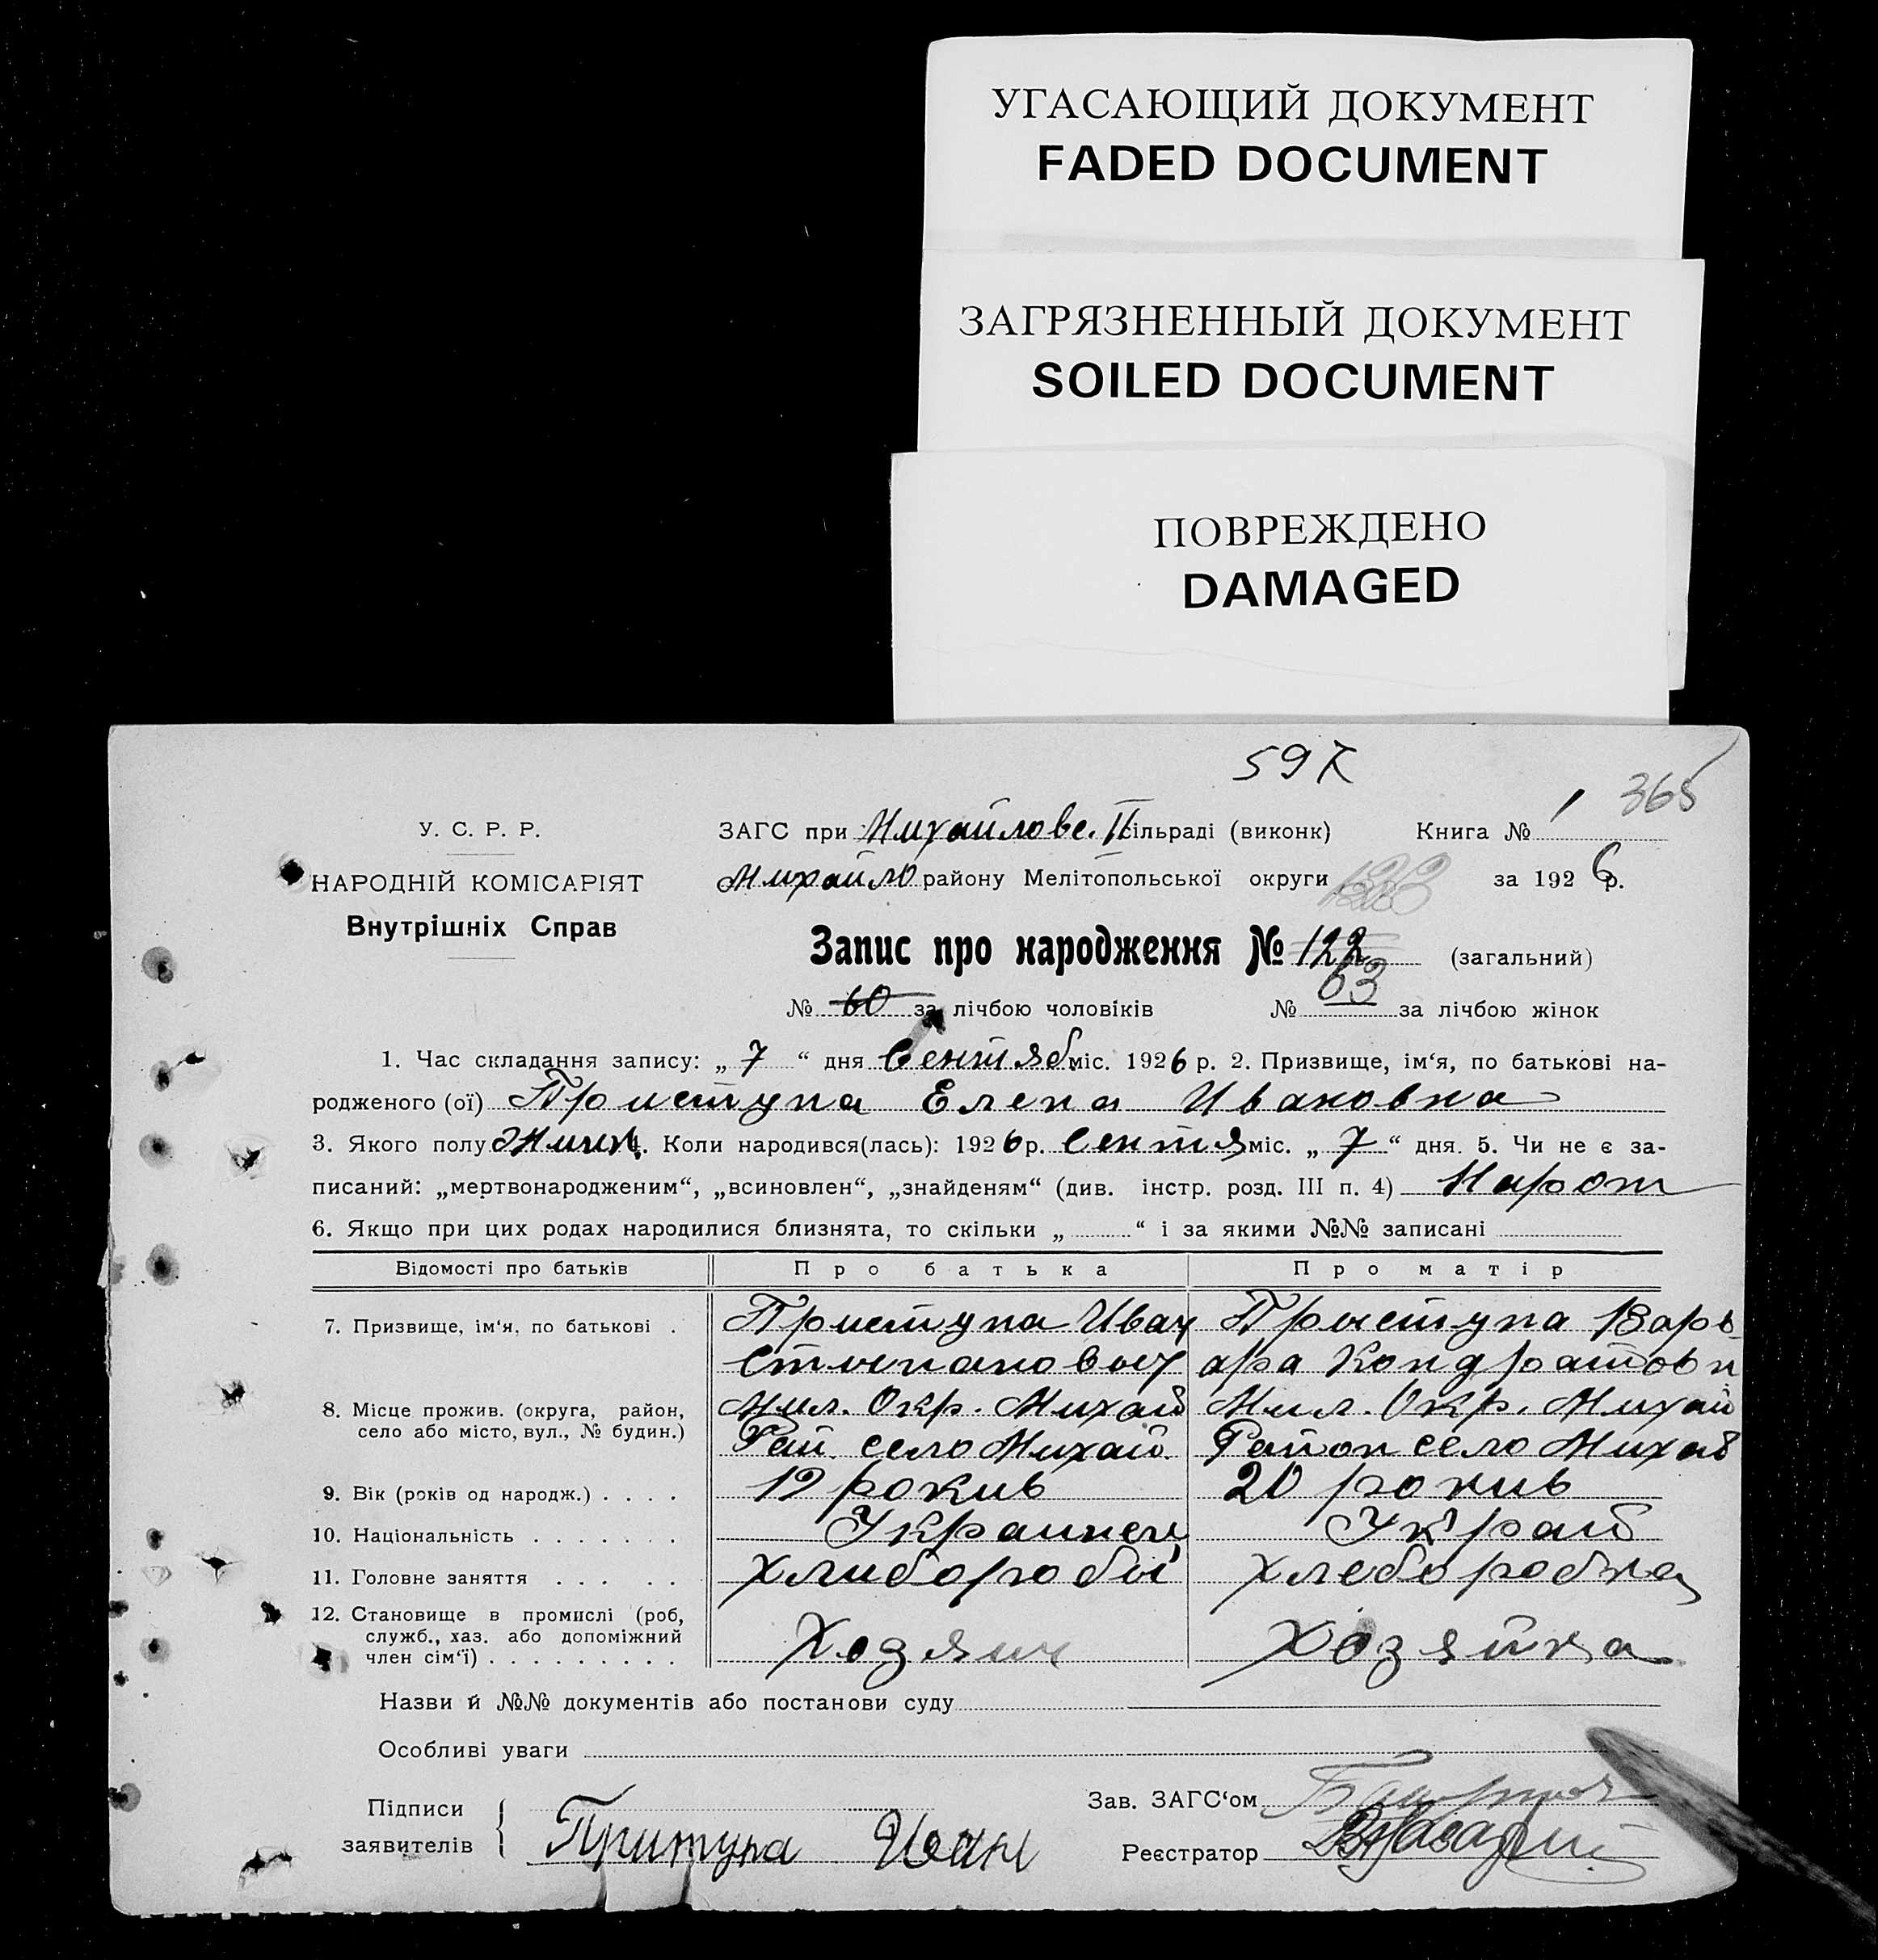 УГАСАЮЩИЙ ДОКУМЕНТ
FADED DOCUMENT
ЗАГРЯЗНЕННЫЙ ДОКУМЕНТ
SOILED DOCUMENT
ПОВРЕЖДЕНО
DAMAGED
59
365
У. С. Р. Р.
ЗАГС при Михайловс. П сільраді (виконк) Книга № 1
НАРОДНІЙ КОМІСАРІЯТ
Михайло району Мелітопольської округи за 1926 р.
Внутрішніх Справ
Запис про народження № 122 (загальний)
№ 60 за лічбою чоловіків № 63 за лічбою жінок
1. Час складання запису: „ 7 “ дня Сентяб міс. 1926 р. 2. Призвище, ім‘я, по батькові на-
родженого (ої) Приступа Елена Ивановна
3. Якого полу Жин. 4. Коли народився(лась): 1926 р. Сентя міс. „ 7 “ дня. 5. Чи не є за-
писаний: „мертвонародженим“, „всиновлен“, „знайденям“ (див. інстр. розд. III п. 4)
6. Якщо при цих родах народилися близнята, то скільки „ “ і за якими №№ записані
Відомості про батьків Про батька Про матір
7. Призвище, ім‘я, по батькові . Приступа Иван Приступа Варь
Стипанович ара Кондратовн
8. Місце прожив. (округа, район, Мил. Окр. Михай Мил. Окр. Михай
село або місто, вул., № будин.) Рай село Михай. Район село Михай
9. Вік (років од народж.) . . . . 19 рокив 20 рокив
10. Національність . . . . . . . Украинец Украй
11. Головне заняття . . . . . Хлиборобы Хлеборобка
12. Становище в промислі (роб,
служб., хаз. або допоміжний Хозяин Хозяйка
член сім‘ї) . . . . . . . . .
Назви й №№ документів або постанови суду
Особливі уваги
Підписи Зав. ЗАГС‘ом
заявителів Притупа Иван Реєстратор